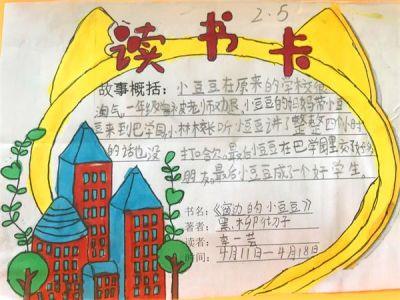 2.5
读书卡
故事概括：小豆豆在原来的学校很
淘气。一年级就被老师劝退，小豆豆的妈妈带小豆
豆来到巴学园，小林校长听小豆豆讲了整整四个小时
的话也没打哈欠。最后小豆豆在巴学园里交了好多
朋友。最后小豆豆成了一个好学生。
书名：《窗边的小豆豆》
著者：黑柳彻子
读者：李一芸
时间：4月11日—4月18日